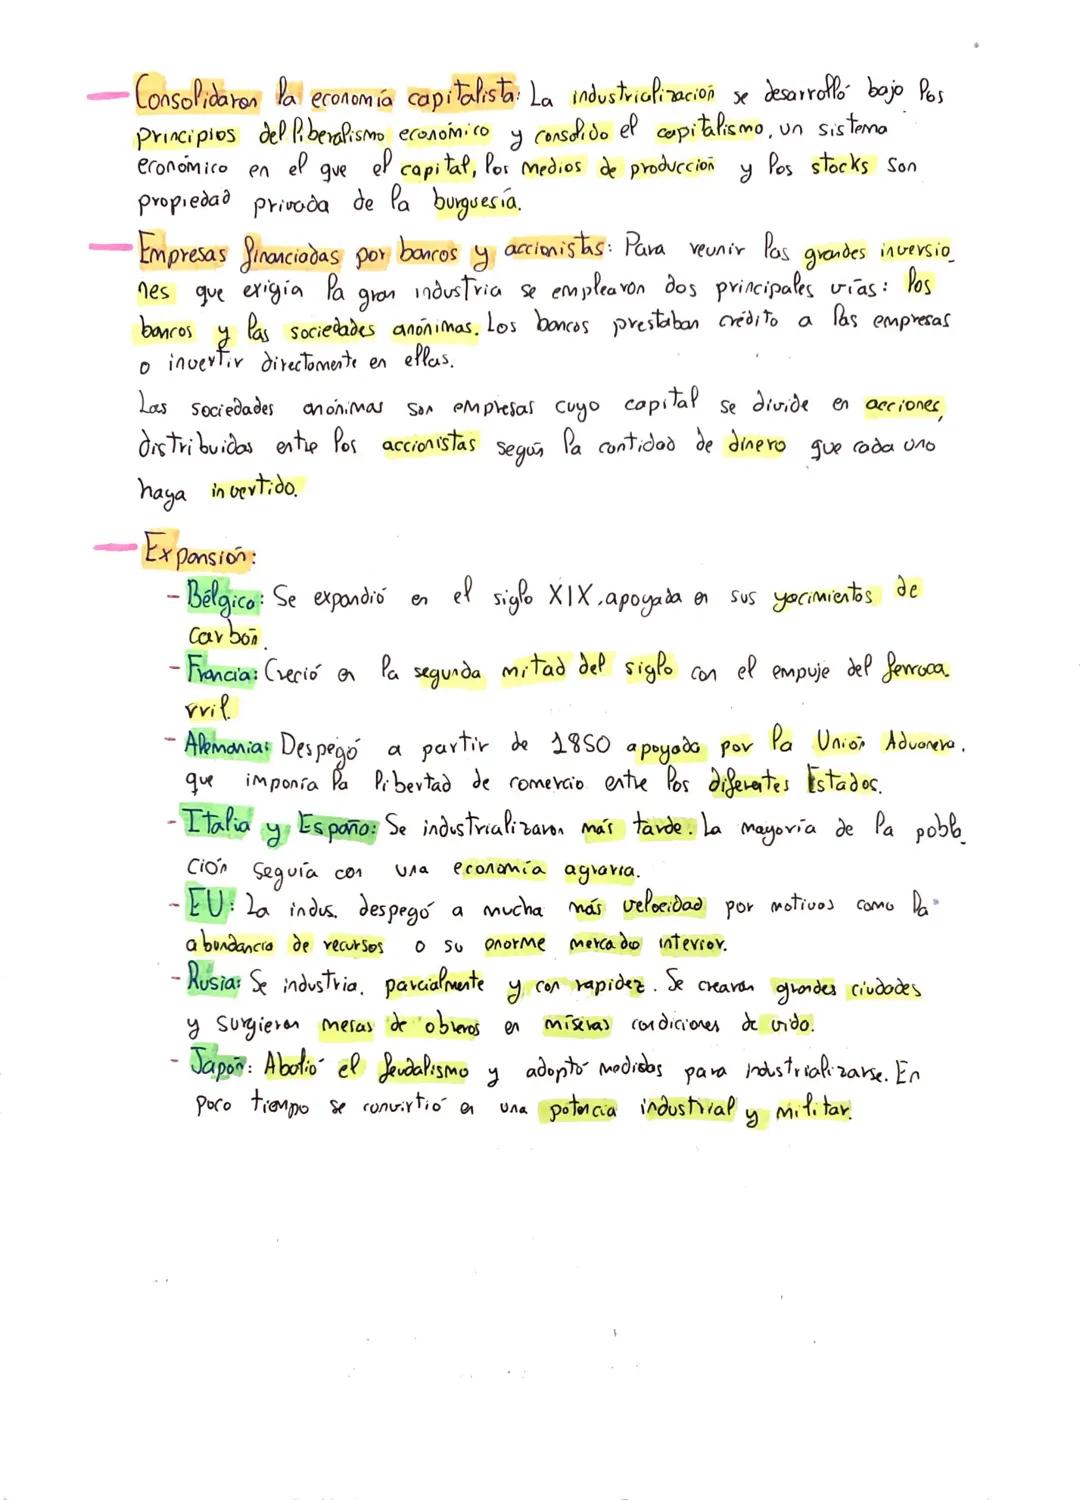 Consolidaron la economía capitalista: La industrialización se desarrolló bajo los
principios del liberalismo económico y consolido el capitalismo, un sistema
económico en el que el capital, los medios de producción y los stocks son
propiedad privada de la burguesía.
Empresas financiadas por bancos y accionistas: Para reunir las grandes inversio_
nes que exigía la gran industria se emplearon dos principales vías: los
bancos y las sociedades anónimas. Los bancos prestaban crédito a las empresas
o invertir directamente en ellas.
Las sociedades anónimas son empresas cuyo capital se divide en acciones,
distribuidas entre los accionistas según la cantidad de dinero que cada uno
haya invertido.
Expansión:
- Bélgica: Se expandió en el siglo XIX, apoyada en sus yacimientos de
carbón.
- Francia: Creció en la segunda mitad del siglo con el empuje del ferroca
rril.
- Alemania: Despegó a partir de 1850 apoyada por la Unión Aduanera,
que imponía la libertad de comercio entre los diferentes Estados.
- Italia y España: Se industrializaron más tarde. La mayoría de la pobla_
ción seguía con una economía agraria.
- EU: La indus. despegó a mucha más velocidad por motivos como la
abundancia de recursos o su enorme mercado interior.
- Rusia: Se industria. parcialmente y con rapidez. Se crearon grandes ciudades
y surgieron mesas de obreros en míseras condiciones de vida.
- Japón: Abolió el feudalismo y adoptó medidas para industrializarse. En
poco tiempo se convirtió en una potencia industrial y militar.